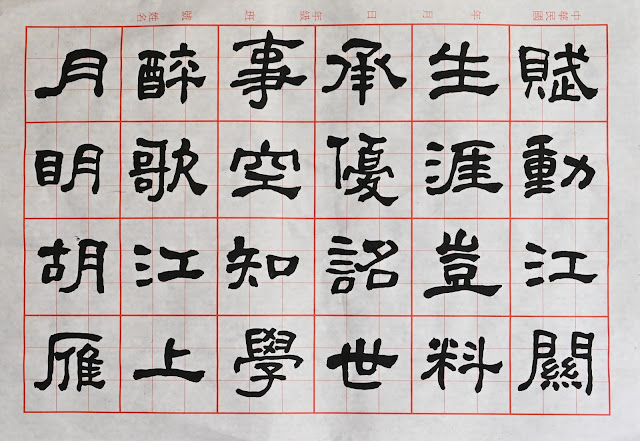 中華民國 年 月 日 年級 班 號 姓名
賦動江關
生涯豈料
承優詔世
事空知學
醉歌江上
月眀胡雁